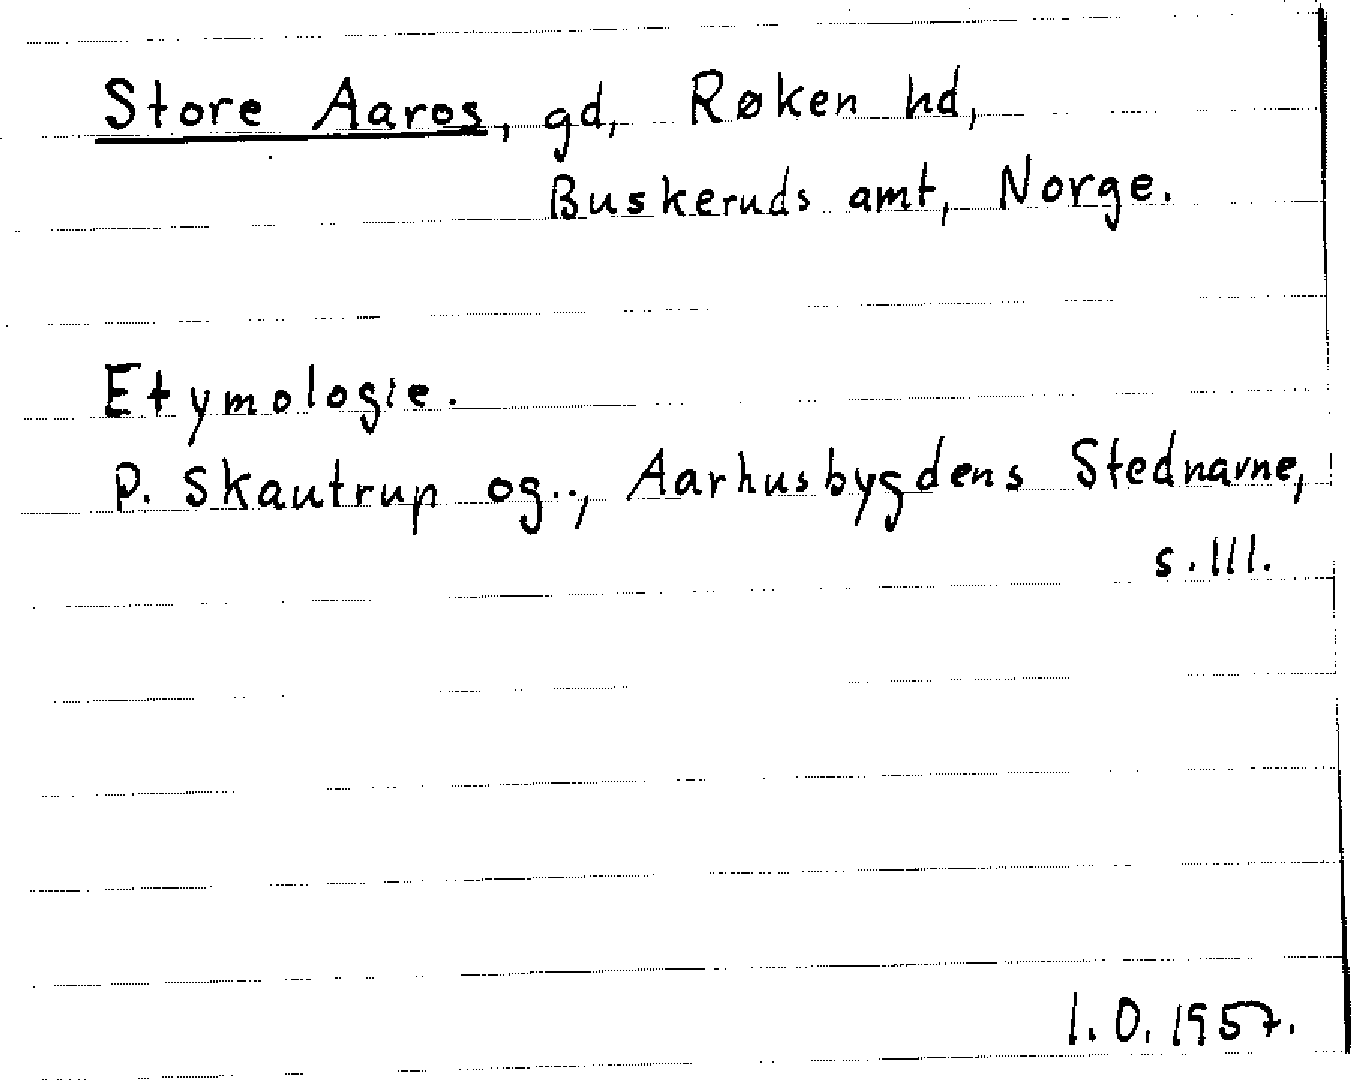 Store Aaros, gd, Røken hd,
Buskeruds amt, Norge.
Etymologie.
P. Skautrup og.., Aarhusbygdens Stednavne,
s.111.
I.O.1957.